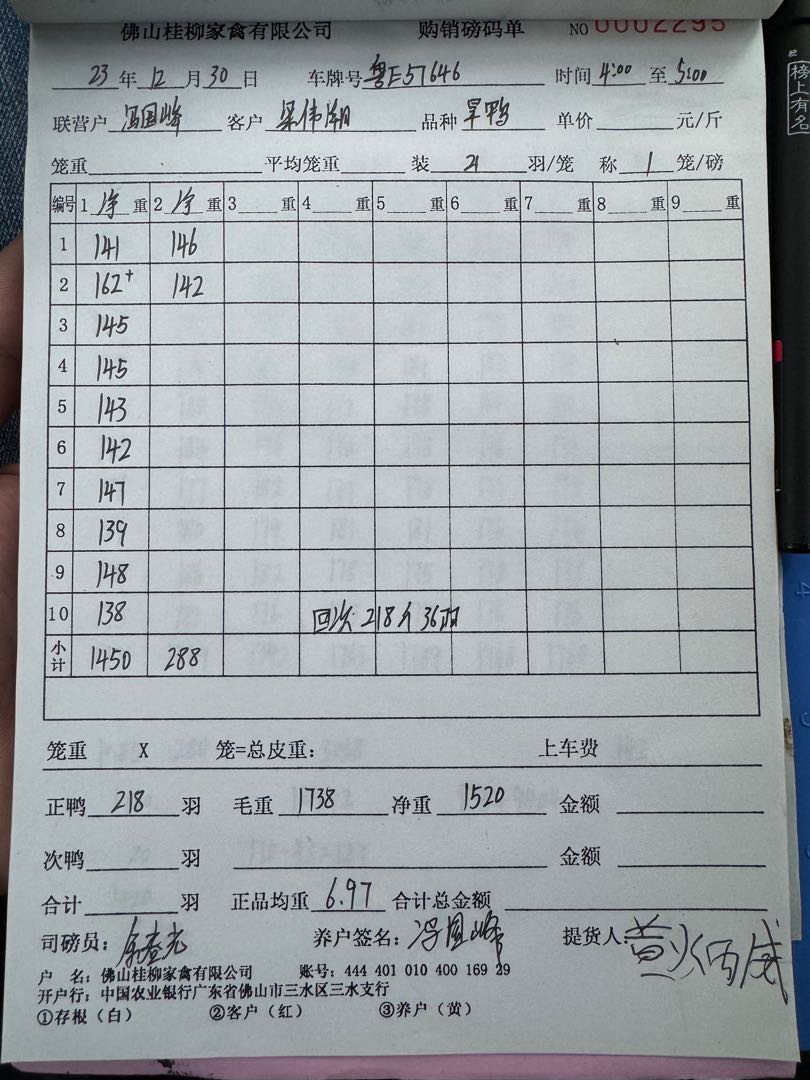 佛山桂柳家禽有限公司 购销磅码单 NO 0002295
23 年 12 月 30 日 车牌号 粤E57646 时间 4:00 至 5:00
联营户 冯国峰 客户 梁伟翔 品种 旱鸭 单价 元/斤
笼重 平均笼重 装 21 羽/笼 称 1 笼/磅
编号 1 净 重 2 净 重 3 重 4 重 5 重 6 重 7 重 8 重 9 重
1 141 146
2 162+ 142
3 145
4 145
5 143
6 142
7 147
8 139
9 148
10 138 回次 218斤 36羽
小计 1450 288
笼重 X 笼=总皮重: 上车费
正鸭 218 羽 毛重 1738 净重 1520 金额
次鸭 羽 金额
合计 羽 正品均重 6.97 合计总金额
司磅员: 养户签名: 冯国峰 提货人:
户 名: 佛山桂柳家禽有限公司 账号: 444 401 010 400 169 29
开户行: 中国农业银行广东省佛山市三水区三水支行
①存根（白） ②客户（红） ③养户（黄）
榜上有名